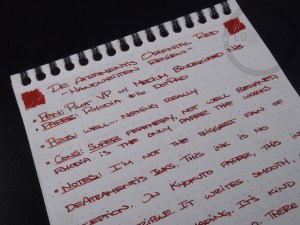 De Atramentis Oriental Red
- Handwritten Review -
• Pen: Pilot VP w/ Medium Binderized Nib
• Paper: Rhodia #16 DotPad
• Pros: Well... Nothing Really
• Cons: Super feathery, not well behaved,
Rhodia is the only paper that works
• Notes: I'm not the biggest fan of
DeAtramentis Inks. This ink is no
exception. On Kyokuto paper, this
It writes smooth.
shading. It's
there